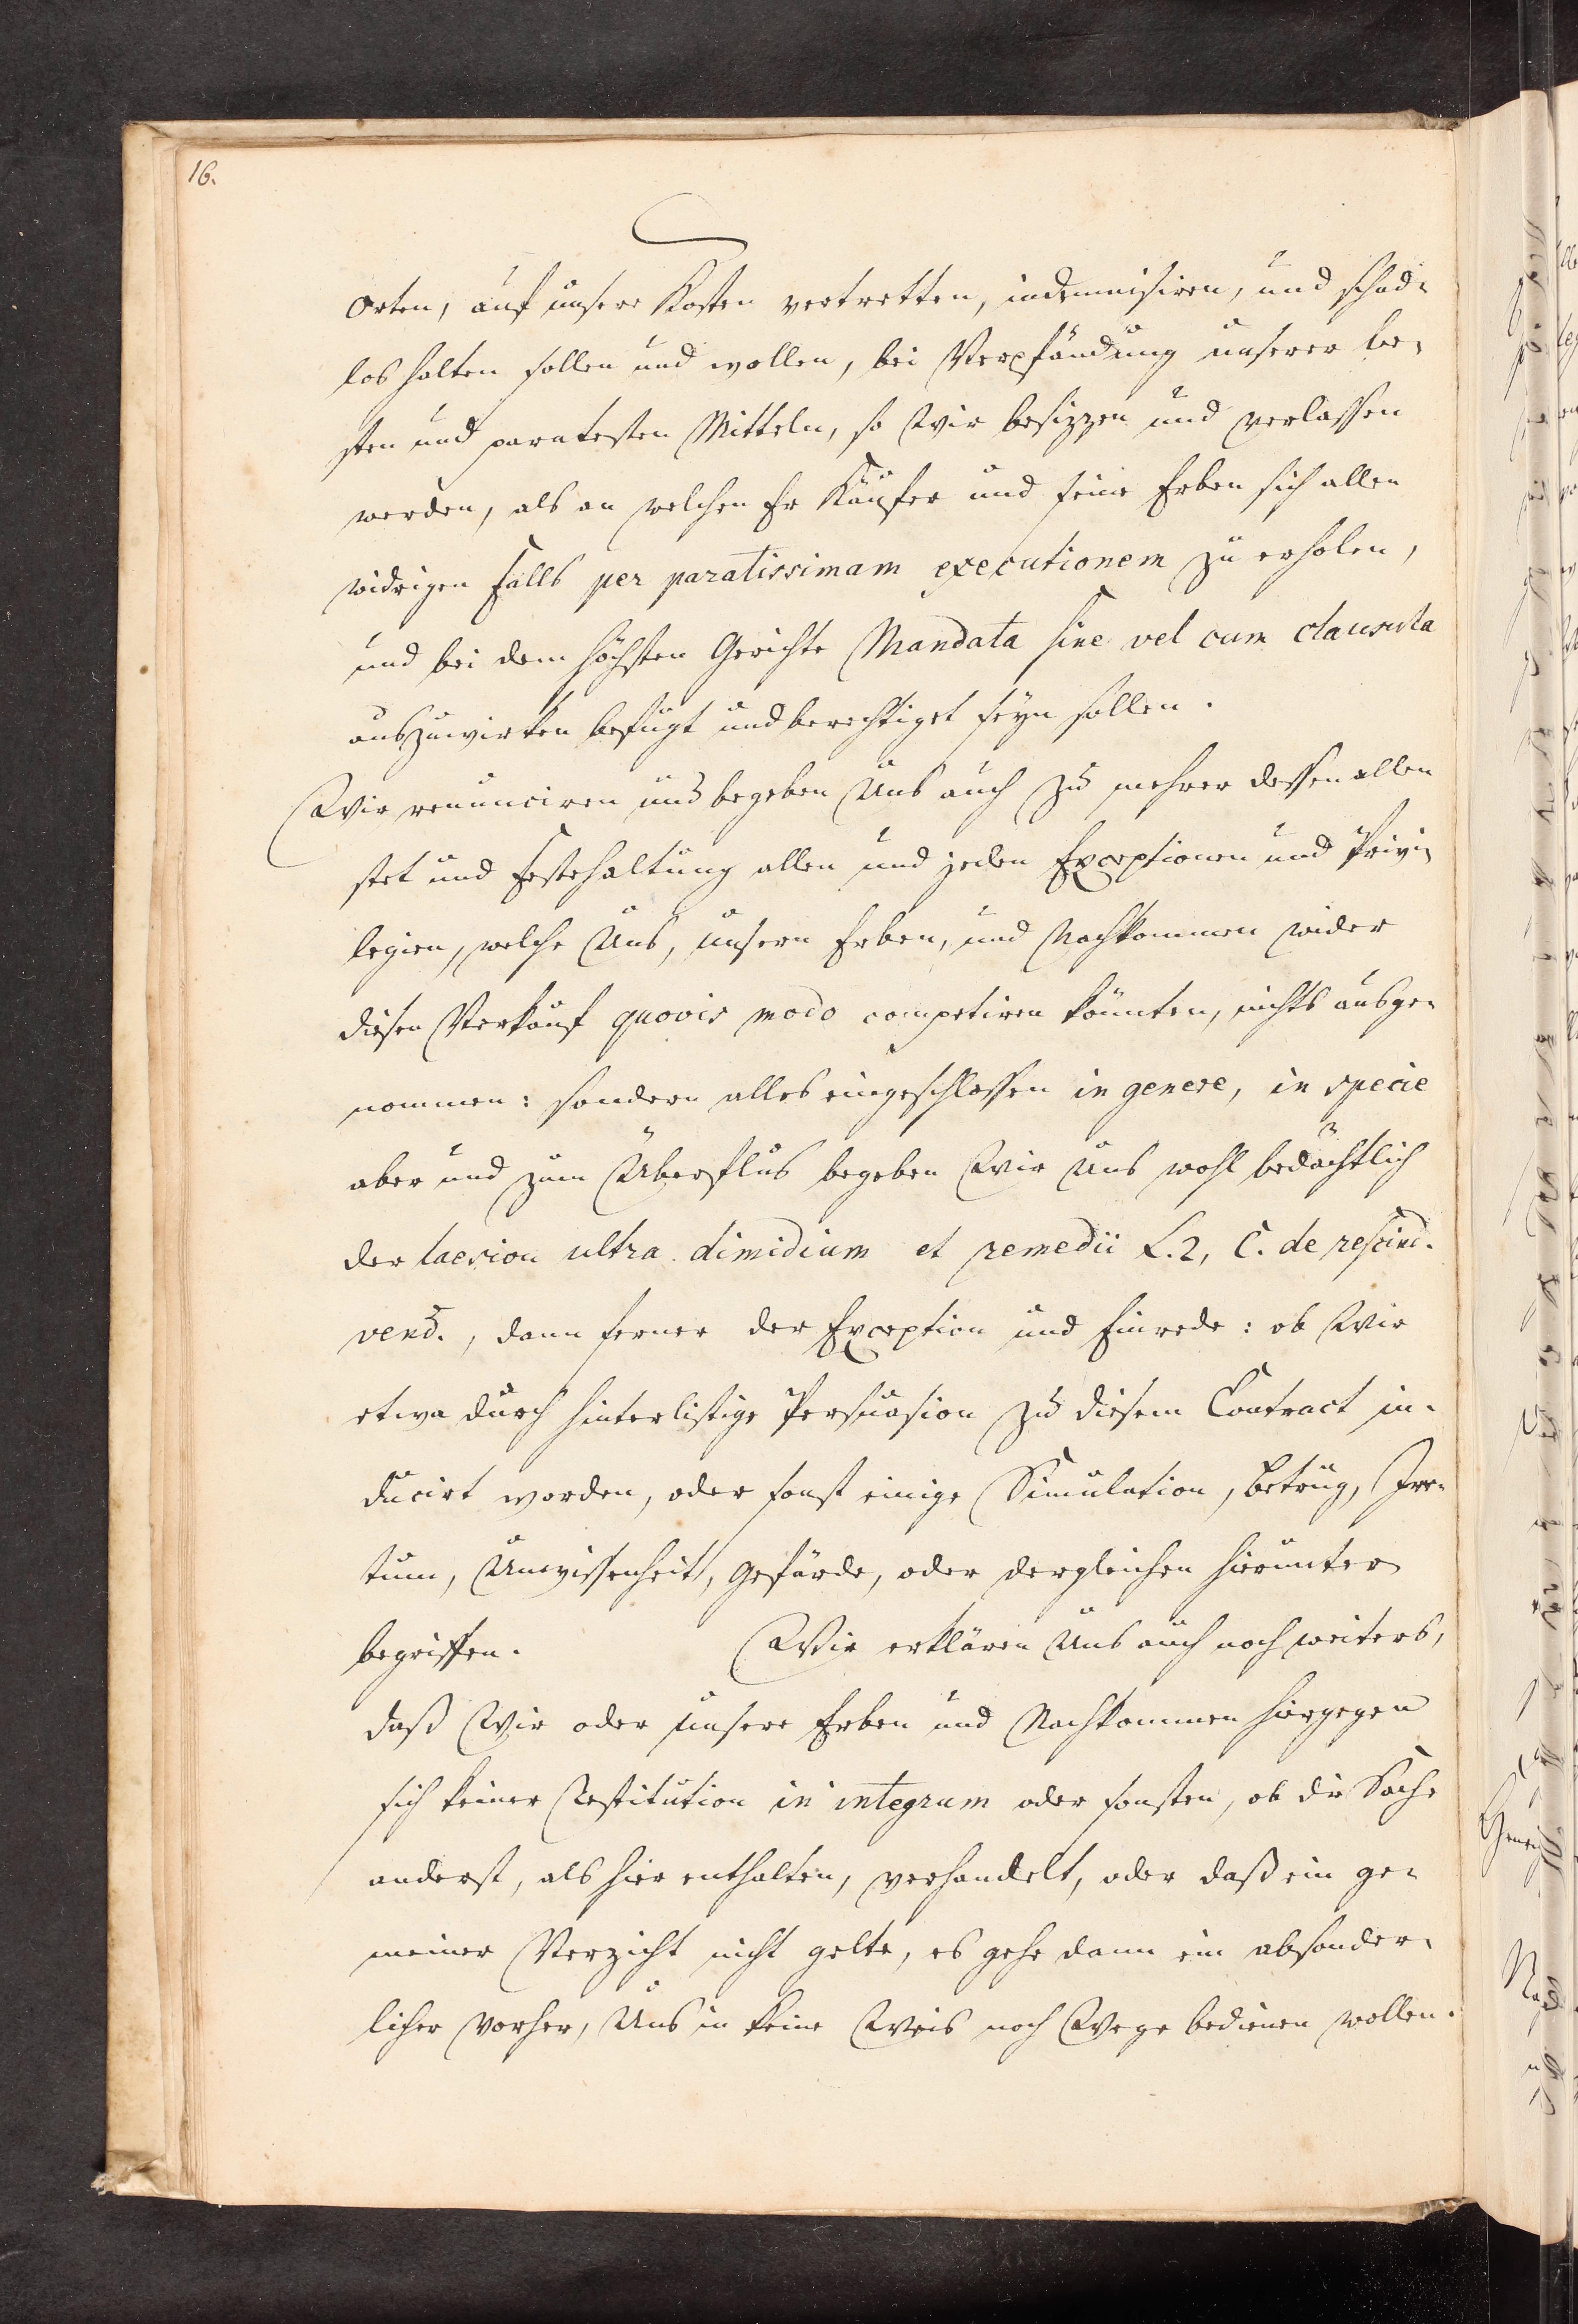 16.
Orten, auf unsere Kosten vertretten, indemnisiren, und schad-
los halten sollen und wollen, bei Verpfändung unserer be-
sten und paratesten Mitteln, so Wir besizzen und verlassen
werden, als an welchen Er Käufer und seine Erben sich allen
widrigen Falls per paratissimam executionem zu erholen,
und bei dem höchsten Gerichte Mandata sine vel cum clausula
auszuwirken befugt und berechtiget seyn sollen.
Wir renunciren und begeben Uns auch zu mehrer dessen allen
stet und Festehaltung allen und jeden Exceptionen und Privi-
legien, welche Uns, unsern Erben, und Nachkommen wider
diesen Verkauf quovis modo competiren könnten, nichts ausge-
nommen: sondern alles eingeschlossen in genere, in specie
aber und zum Überflus begeben Wir Uns wohl bedächtlich
der laesion ultra dimidium et remedii L. 2, C. de rescind.
vend., dann ferner der Exception und Einrede: ob Wir
etwa durch hinterlistige Persuasion zu diesem Contract in-
ducirt worden, oder sonst einige Simulation, Betrug, Irr-
tum, Unwissenheit, Gefärde, oder dergleichen hierunter
begriffen. Wir erklären Uns auch noch weiters,
daß Wir oder unsere Erben und Nachkommen hiergegen
sich keiner Restitution in integrum oder sonsten, ob die Sache
anderst, als hier enthalten, verhandelt, oder daß ein ge-
meiner Verzicht nicht gelte, es gehe dann ein absonder-
licher vorher, Uns in keine Weis noch Wege bedienen wollen.